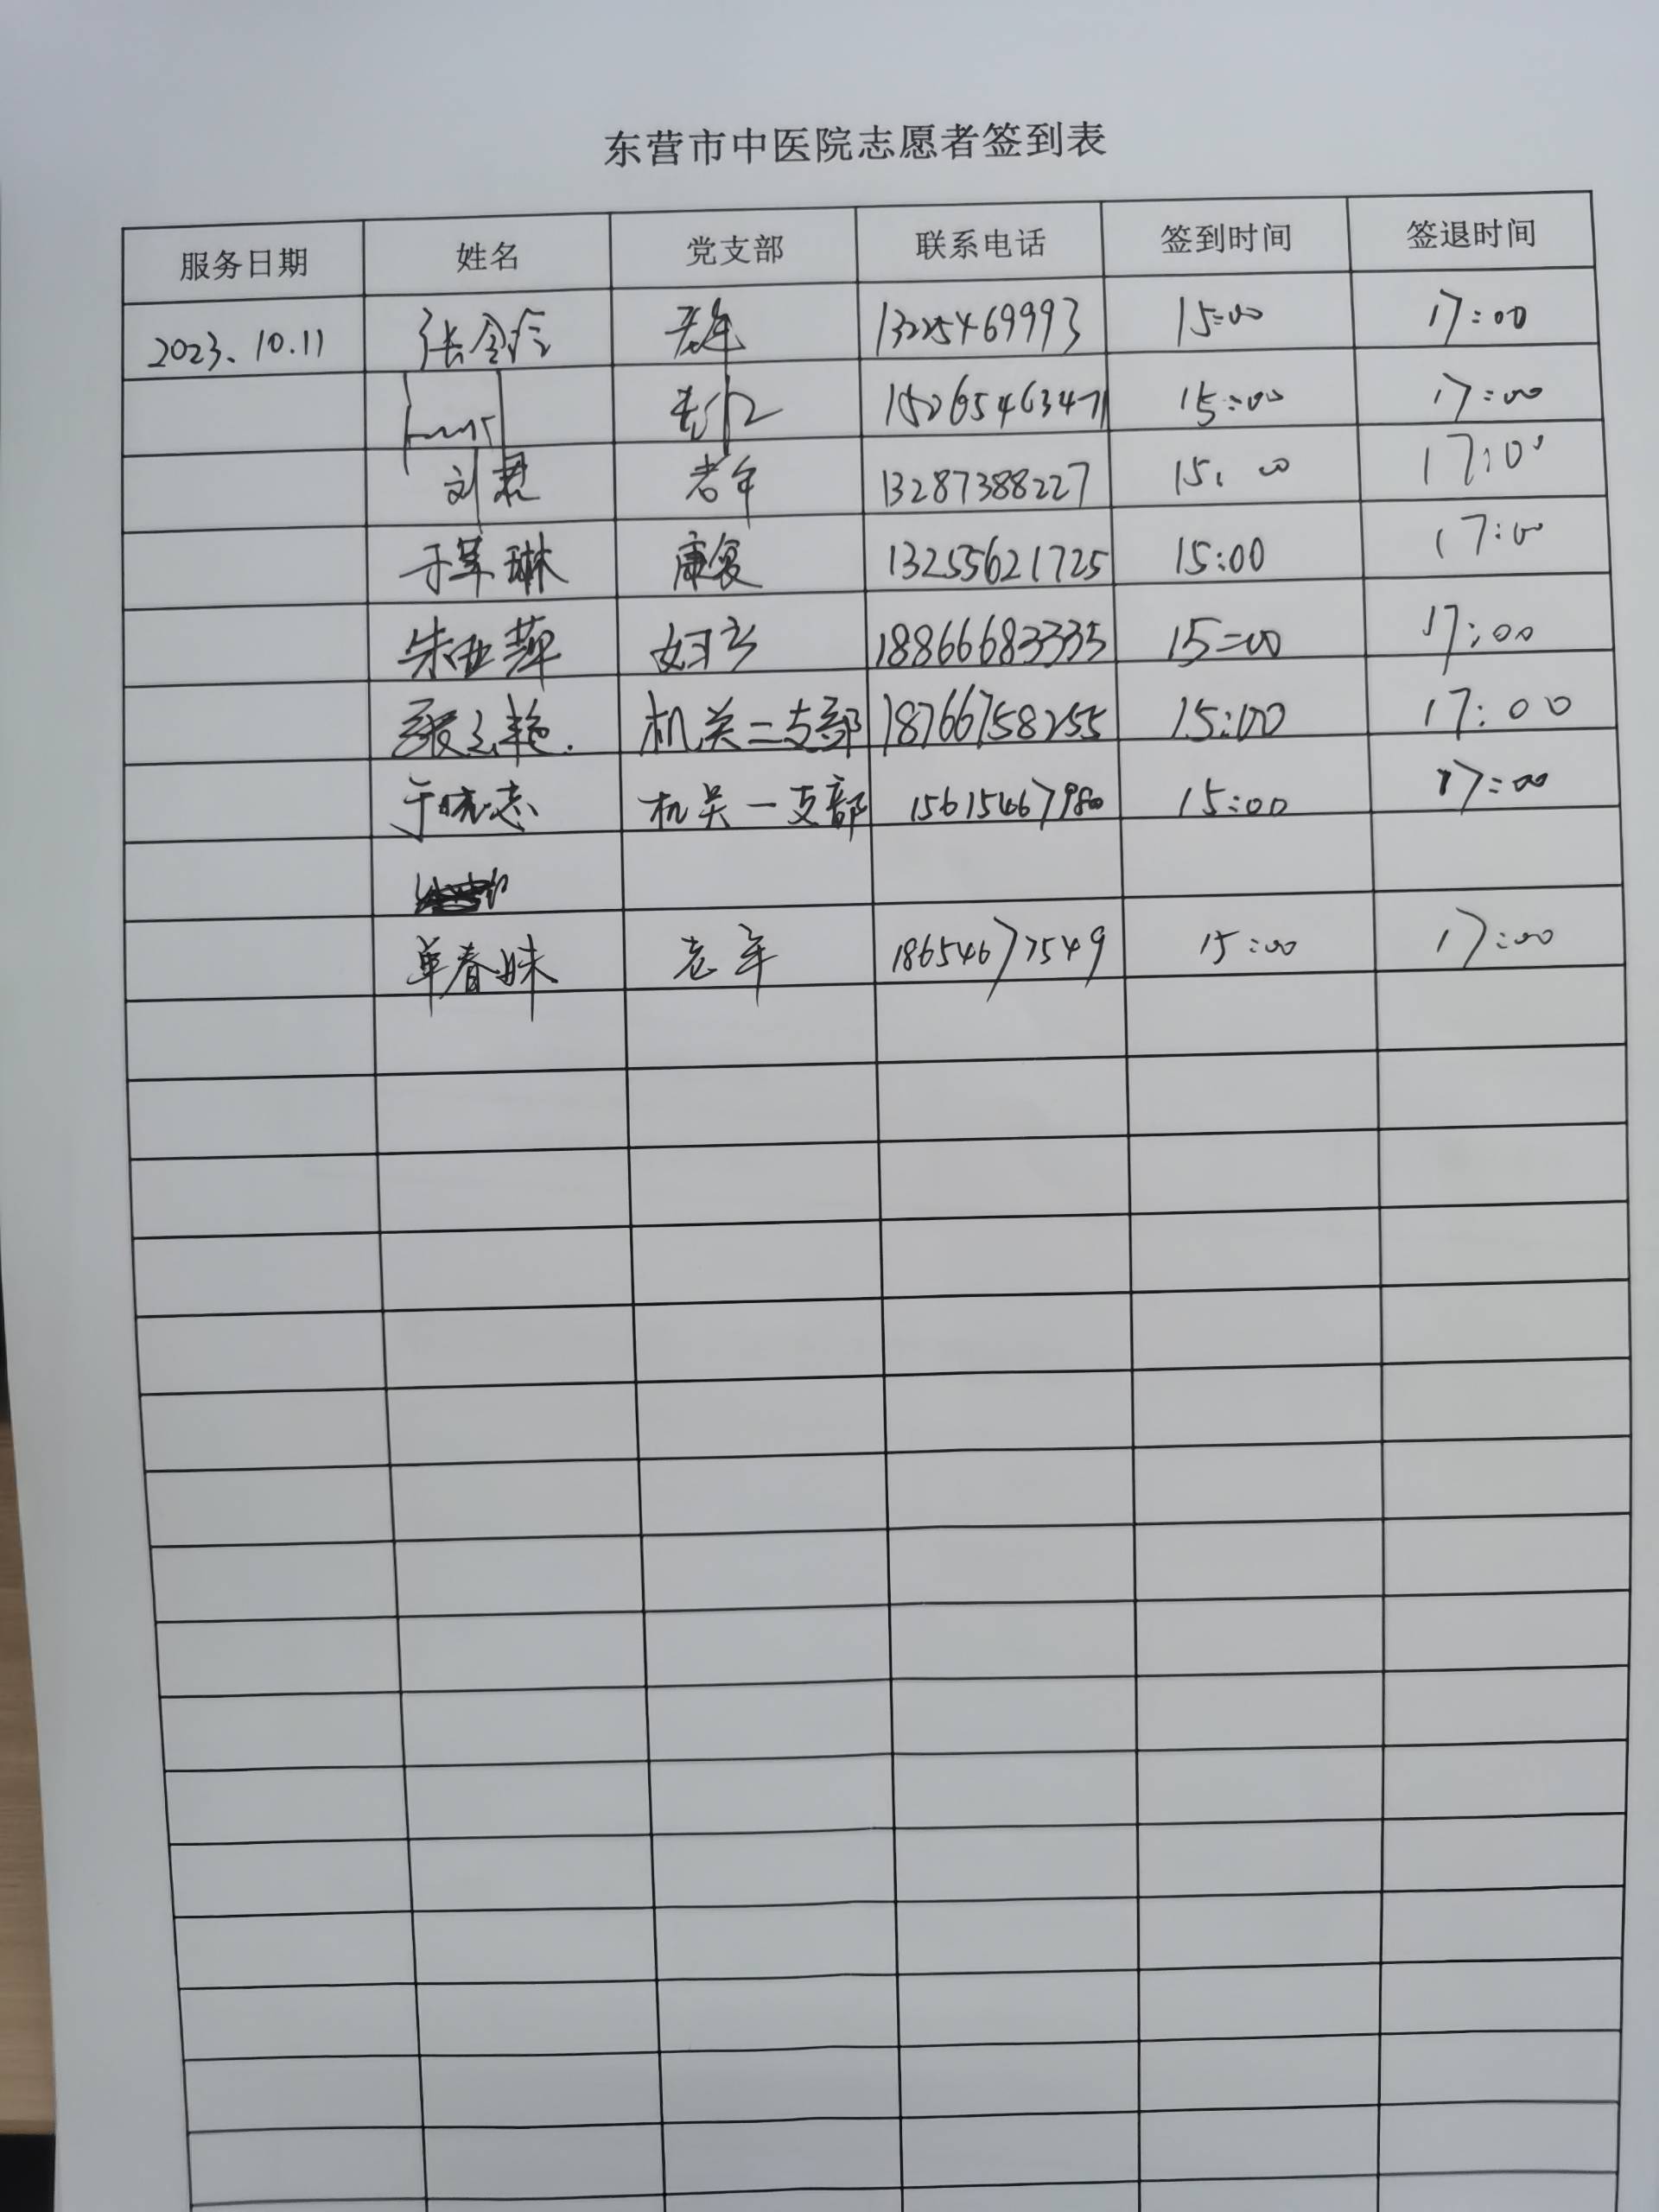 东营市中医院志愿者签到表
服务日期 姓名 党支部 联系电话 签到时间 签退时间
2023.10.11 张会玲 老年 13225469993 15:00 17:00
15265463471 15:00 17:00
刘君 老年 13287388227 15:00 17:00
于笔琳 康复 13255621725 15:00 17:00
朱亚萍 妇产 18866683335 15:00 17:00
机关二支部 18766758255 15:00 17:00
于晓志 机关一支部 15615467980 15:00 17:00
单春妹 老年 18654677549 15:00 17:00